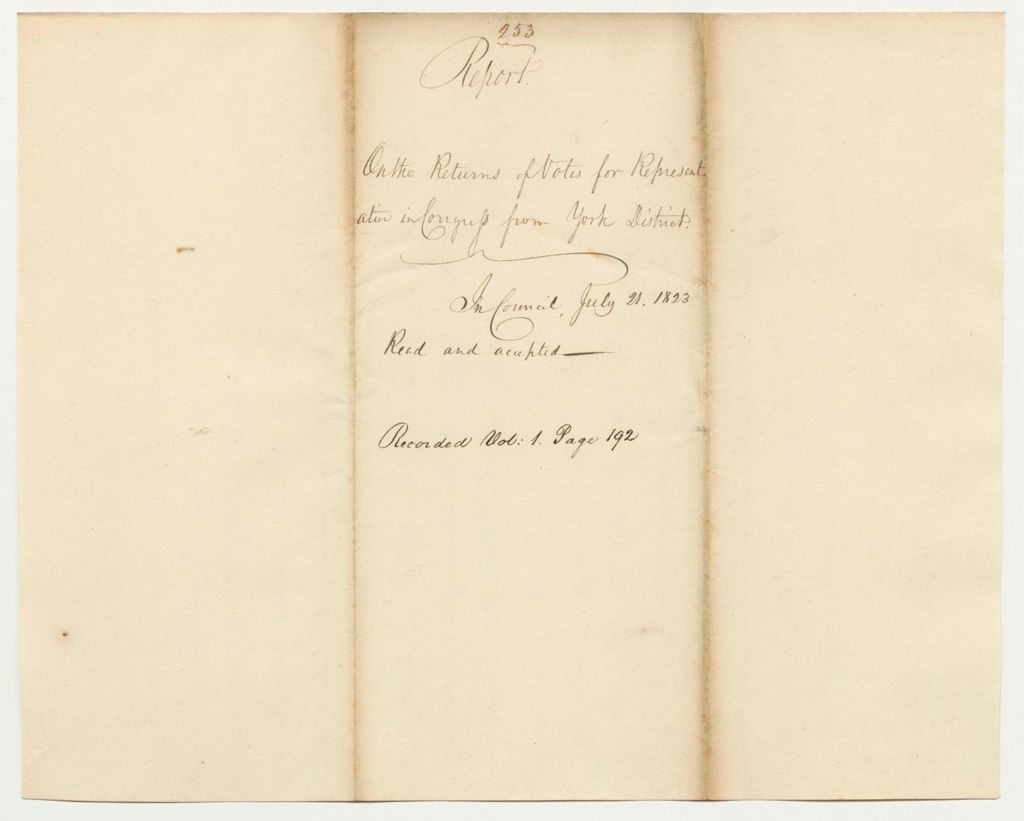 253
Report.
On the Returns of Votes for Represent
ative in Congress from York District.
In Council, July 21. 1823
Read and accepted
Recorded Vol: 1. Page 192